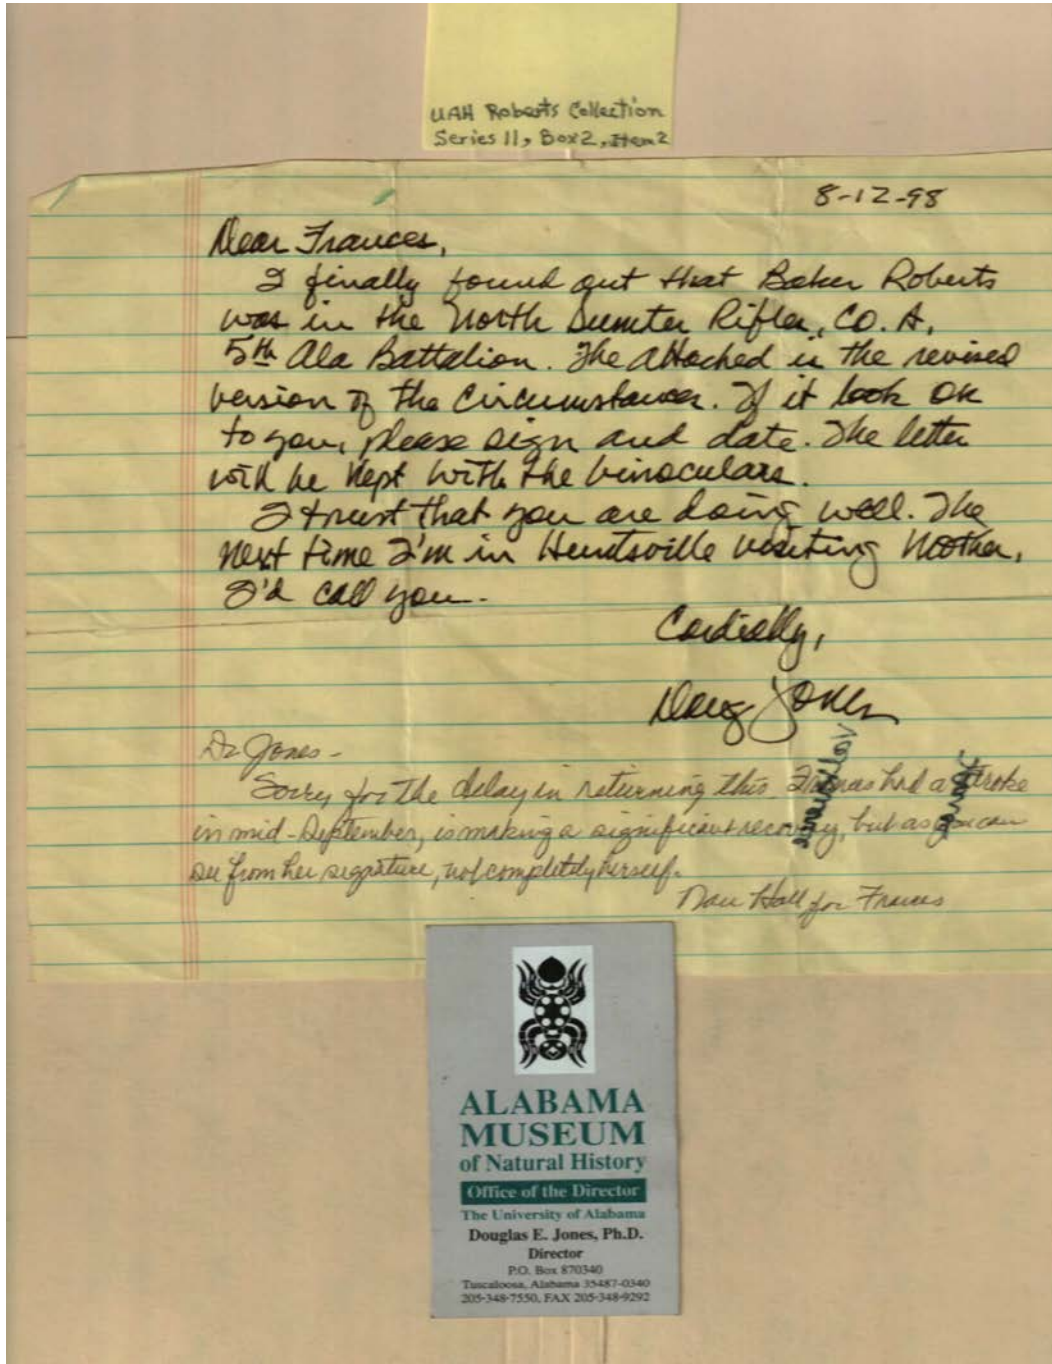 UAH Roberts Collection
Series 11, Box 2, Item 2
8-12-98
Dear Frances,
I finally found out that Baker Roberts
was in the North Sumter Rifles, CO. A,
5th Ala Battalion. The attached is the revised
version of the circumstances. If it look OK
to you, please sign and date. The letter
will be kept with the binoculars.
I trust that you are doing well. The
next time I'm in Huntsville visiting Mother,
I'd call you.
Cordially,
Doug Jones
Dr Jones -
Sorry for the delay in returning this. Frances had a stroke
in mid-September, is making a significant recovery, but as you can
see from her signature, not completely herself.
Nan Hall for Frances
ALABAMA
MUSEUM
of Natural History
Office of the Director
The University of Alabama
Douglas E. Jones, Ph.D.
Director
P.O. Box 870340
Tuscaloosa, Alabama 35487-0340
205-348-7550, FAX 205-348-9292